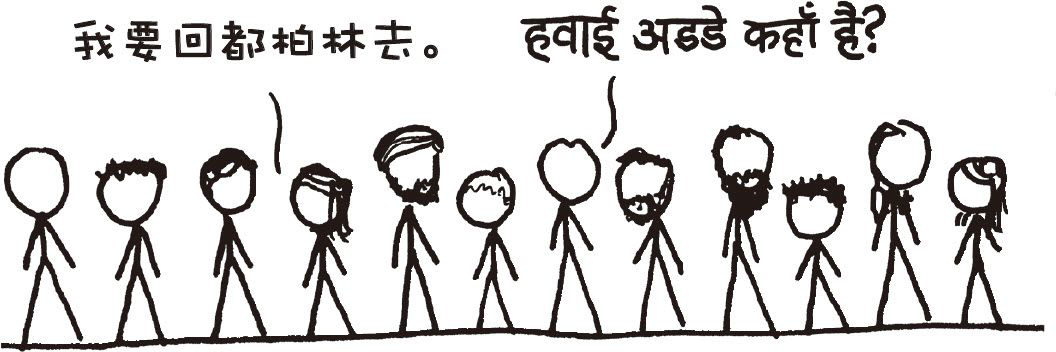 我要回都柏林去。
हवाई अडडे कहाँ है?